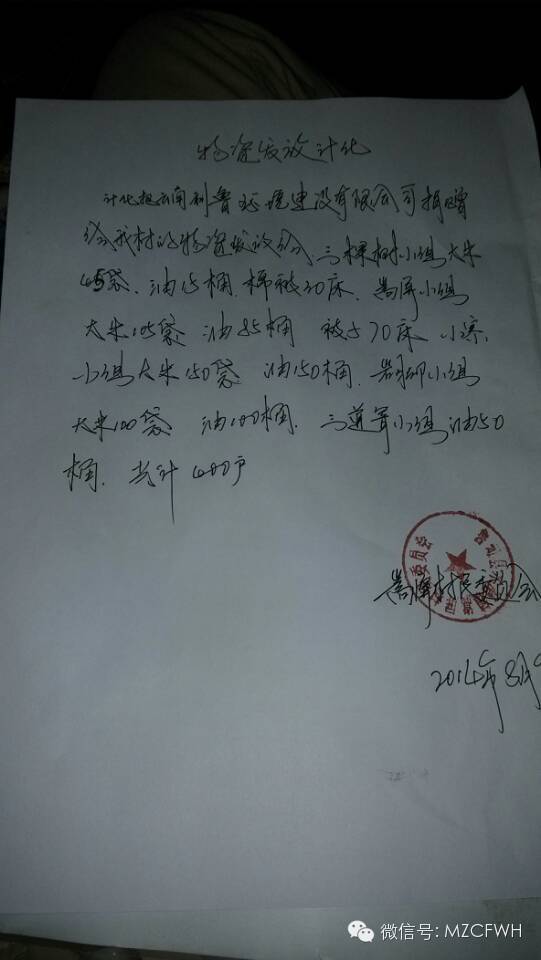 物资发放计化
计化把云南利鲁环境建设有限公司捐赠
给我村的物资发放给三棵树小组大米
45袋、油15桶 棉被30床、嵩屏小组
大米105袋 油85桶 被子70床 小寨
小组大米150袋 油150桶、小组
大米100袋 油100桶、小组油50
桶、共计400户
嵩屏村民委员会
2014年8月9
微信号: MZCFWH